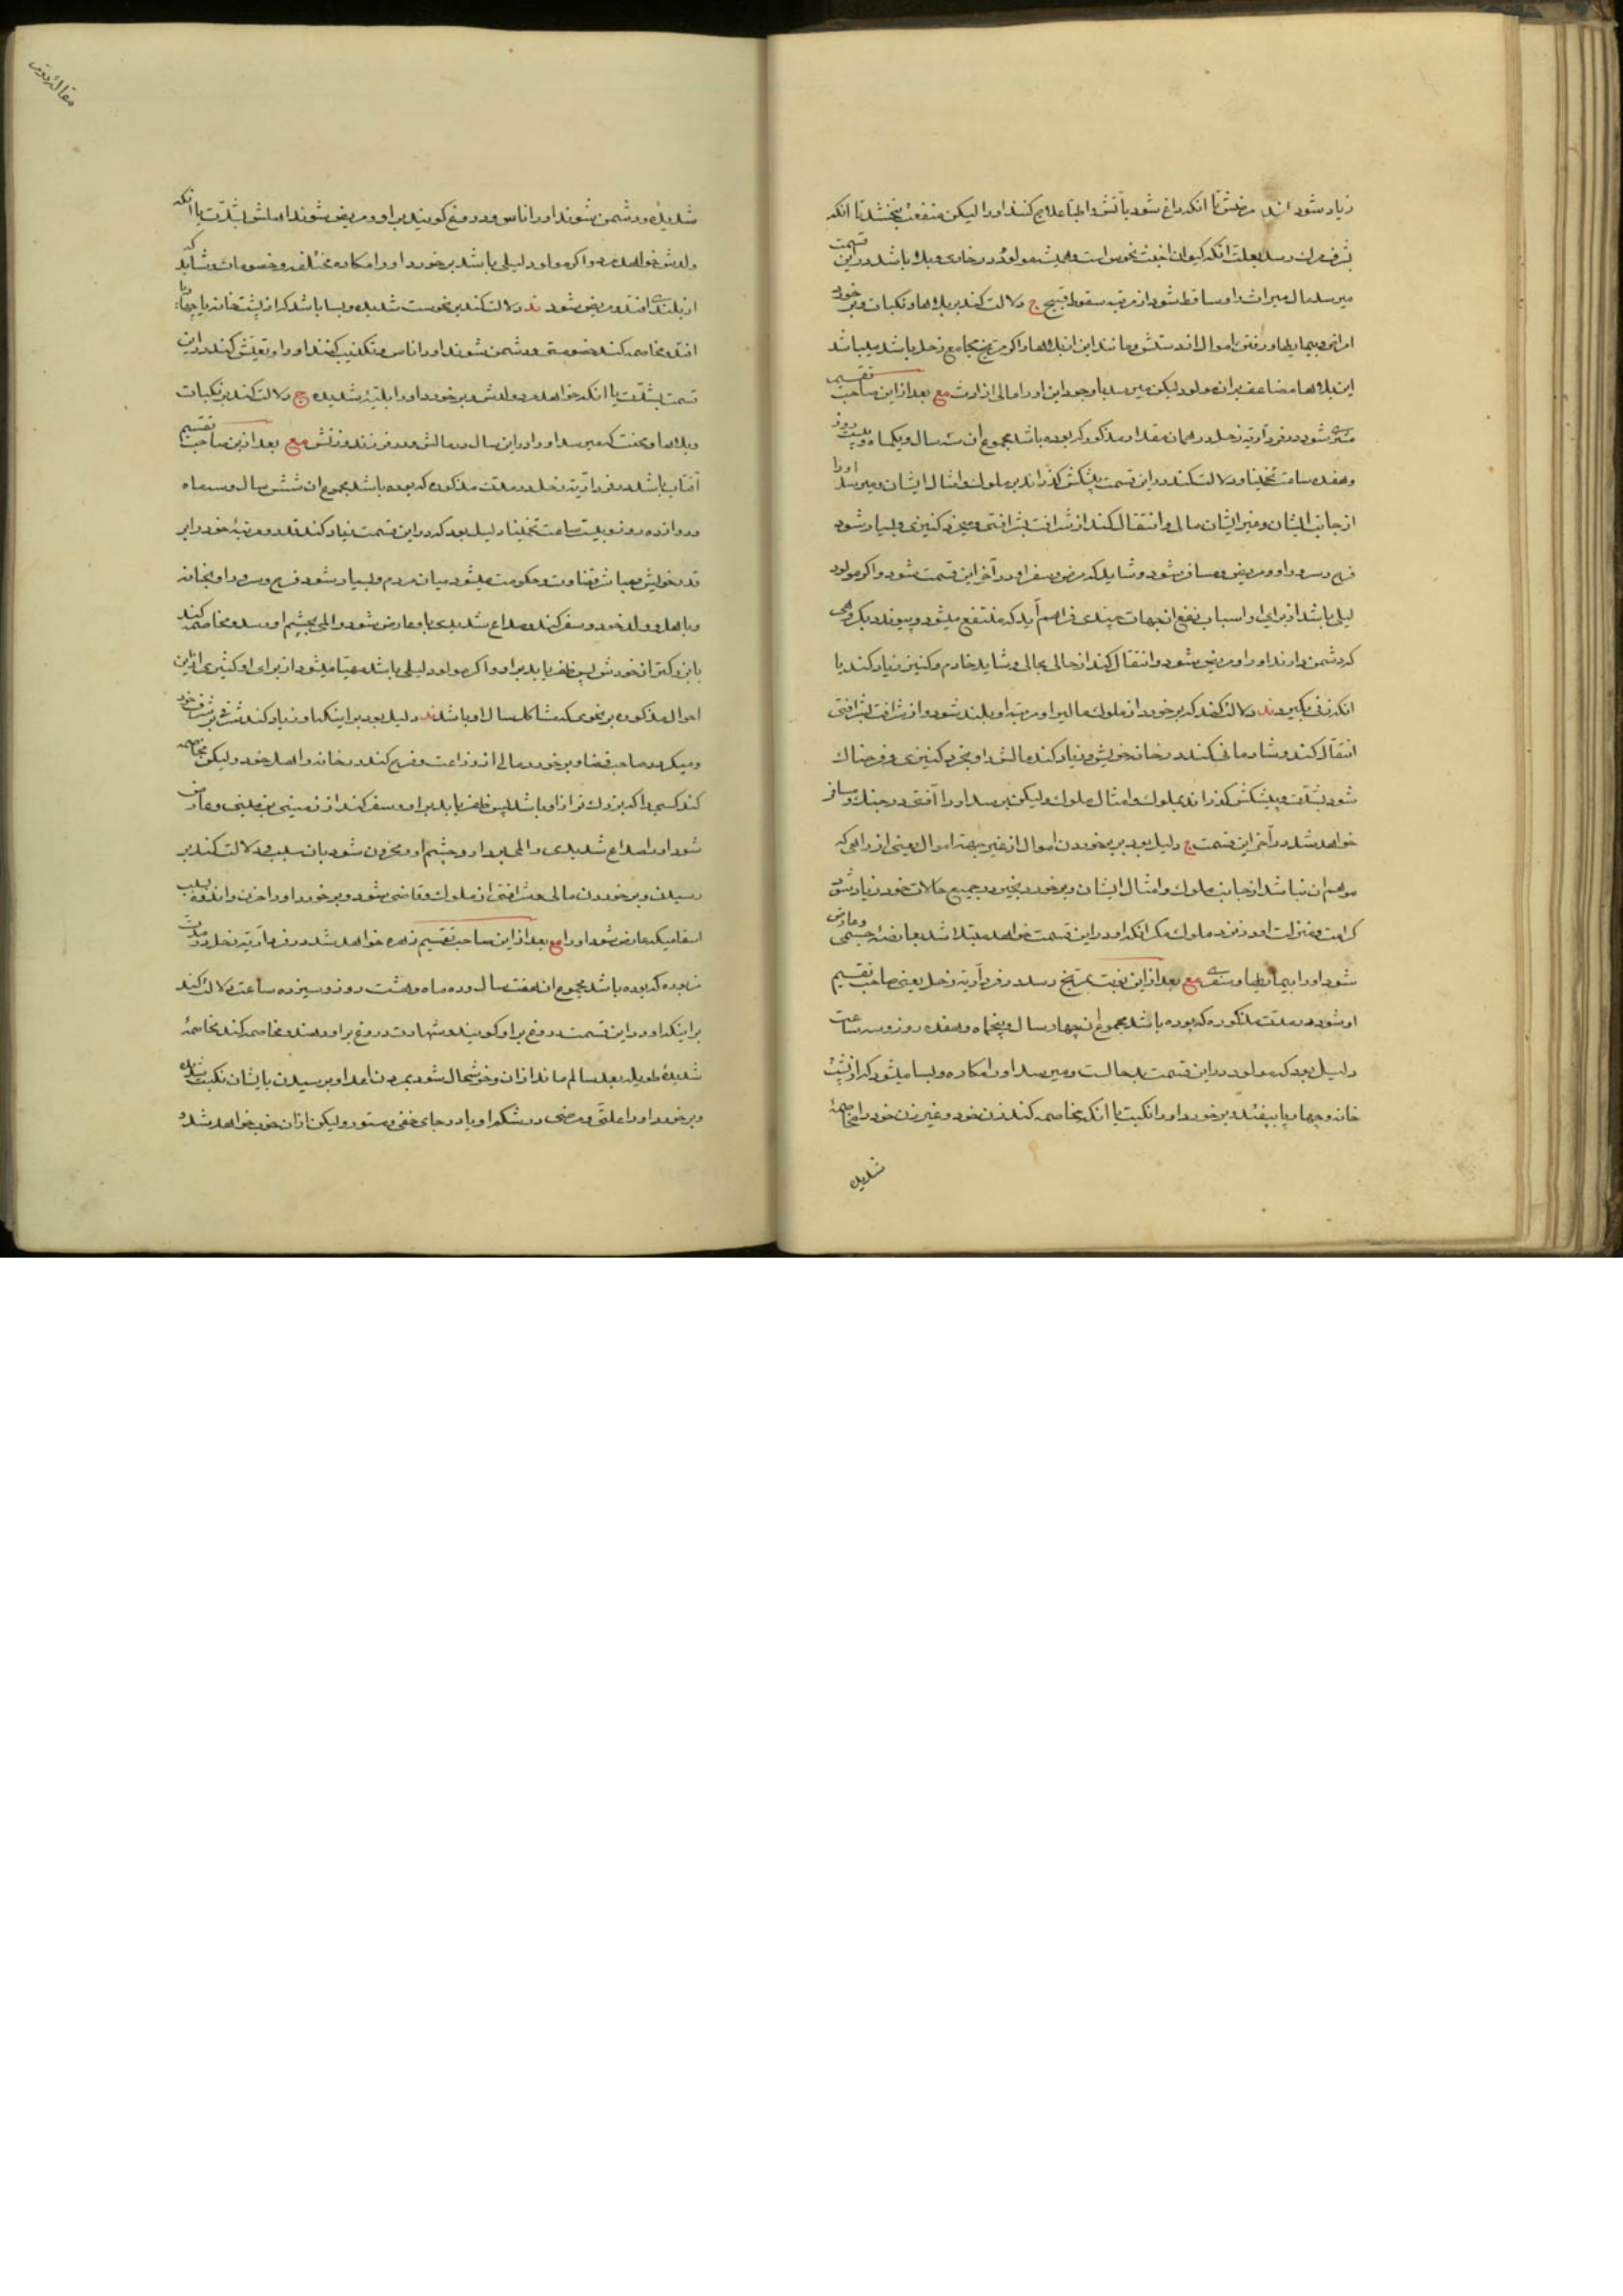 زیاد شود مرضش تا انکه داغ شود باتش و اطبا علاج کنند او را لیکن منفعت نبخشد تا انکه
بشرف مرک رسد بعلت انکه کیوان اخبث نحوس است و همیشه مولود در خادی و بلا باشد در این قسمت
میرسد مال میراث او ساقط شود از مرتبه سقوط قبیح ج دلالت کند بر بلاها و نکبات و بر خورد
امراض و بیماریها و رفتن اموال از دستش و مانند این از بلاها و اکر مریخ مجامع زحل باشد میباشد
این بلاها مضاعف بر ان مولود لیکن میرسد با وجود این او را مالی از ارث مع بعد از این صاحب تقسیم
مشتری شود در فردآریه زحل در همان مقدار مذکور که بوده باشد مجموع ان سه سال و یکماه و بیست روز
و هفده ساعت تخمینا و دلالت کند در این قسمت پیشکش کذراند بر ملوک و امثال ایشان و میرسد او را
از جانب ایشان و غیر ایشان مالی و انتقال کند از شرافت بشرافتی و میخرد کنیزی و بسیار شود
فرح و سرور او و مریض و مسافر شود و شاید که مرض و سفر او در آخر این قسمت شود و اکر مولود
لیلی باشد از برای او اسباب نفع از جهات چندی فراهم آید که منتفع میشود و پیوندد بکروهی
که دشمن دارند او را و مریض شود و انتقال کند از حالی بحالی و شاید خادم و کنیز زیاد کند یا
انکه زنی بکیرد ند دلالت کند که بر خورد از ملوک مالیرا و مرتبه او بلند شود و از شرافت بشرافتی
انتقال کند و شادمانی کند در خانه خویش و زیاد کند مالش را و بخرد کنیزی و فرحناک
شود بشدت و پیشکش کذراند بملوک و امثال ملوک و لیکن برسد او را آفتی در جنک و مسافر
خواهد شد در آخر این قسمت ج دلیل بود بر بر خوردن اموال از غیر جهة اموال یعنی از راهی که
موهم ان نباشد از جانب ملوک و امثال ایشان و بر خورد بخیر در جمیع حالات خود زیاد شود
کرامت و منزلت او در نزد ملوک مکر انکه او در این قسمت خواهد مبتلا شد بعارضهٔ جسمی و عارض
شود او را بیماریها و سفری مع بعد از این نوبت بمریخ رسد در فردآریه زحل یعنی صاحب تقسیم
او شود در مدت مذکوره که بوده باشد مجموع ان چهار سال و پنجماه و هفده روز و سه ساعت
دلیل بود که مولود در این قسمت بد حالست و میرسد او را مکاره و بسا میشود که از پشت
خانه و چهار پا بیفتد و بر خورد او را نکبت یا انکه مخاصمه کند زن خود و غیر زن خود را مخاصمهٔ
شدیده
شدیده و دشمن شوند او را ناس و دروغ کویند بر او و مریض شوند اهلش بشدت یا انکه
ولدش خواهد مرد و اکر مولود لیلی باشد بر خورد او را مکاره مختلفه و خصومات و شاید که
از بلندی افتد و مریض شود ند دلالت کند بر نحوست شدیده و بسا باشد که از پشت خانه یا چهار پا
افتد و مخاصمه کند خصومتی و دشمن شوند او را ناس و تکذیب کنند او را و تفتیش کند در این
قسمت بشدت یا انکه خواهد مرد ولدش و بر خورد او را بلیهٔ شدیده ج دلالت کند بر نکبات
و بلاها و محنت که میرسد او را در این سال در مالش و در فرزند و زنش مع بعد از این صاحب تقسیم
آفتاب باشد در فردآریه زحل در مدت مذکوره که بوده باشد مجموع ان شش سال و سه ماه
و دوازده روز و بیست ساعت تخمینا دلیل بود که در این قسمت زیاد کند قدر و مرتبهٔ خود را بر
قدر خویش و مباشر قضاوت و حکومت میشود میان مردم و بسیار شود فرح و سرور او بخانه
و باهل و ولد خود و سفر کند و صداع شدیدی با و عارض شود و المی بچشم او رسد و مخاصمه کند
با بزرکتر از خودش پس ظفر یابد بر او و اکر مولود لیلی باشد مهیا میشود از برای او کثیری از این
احوال مذکوره بر نحوی که مشاکل سال او باشد ند دلیل بود بر اینکه او زیاد کند شرفی بر شرف خود
و میکردد صاحب قضا و بر خورد مالی از زراعت و فرح کند در خانه و اهل خود و لیکن مخاصمه
کند کسی را که بزرک تر از او باشد پس ظفر یابد بر او و سفر کند از زمینی بزمینی و عارض
شود او را صداع شدیدی و المی بر دو چشم او و محزون شود بان سبب و دلالت کند بر
رسیدن و بر خوردن مالی و شرافتی از ملوک و قاضی بشود و بر خورد او را حزن و اندوه بسبب
اسقامیکه عارض شود او را مع بعد از این صاحب تقسیم زهره خواهد شد در فردآریه زحل در مدت
مزبوره که بوده باشد مجموع ان هفت سال و ده ماه و هشت روز و سیزده ساعت دلالت کند
بر اینکه او در این قسمت دروغ بر او کویند و شهادت دروغ بر او دهند و مخاصمه کند مخاصمهٔ
شدیدهٔ طویله بعد سالم ماند از ان و خوشحال شود بمردن اعدا و برسیدن بایشان نکبت شدیده
و بر خورد او را علتی و مرضی در شکم او یا در جای مخفی و مستور و لیکن از ان خوب خواهد شد و